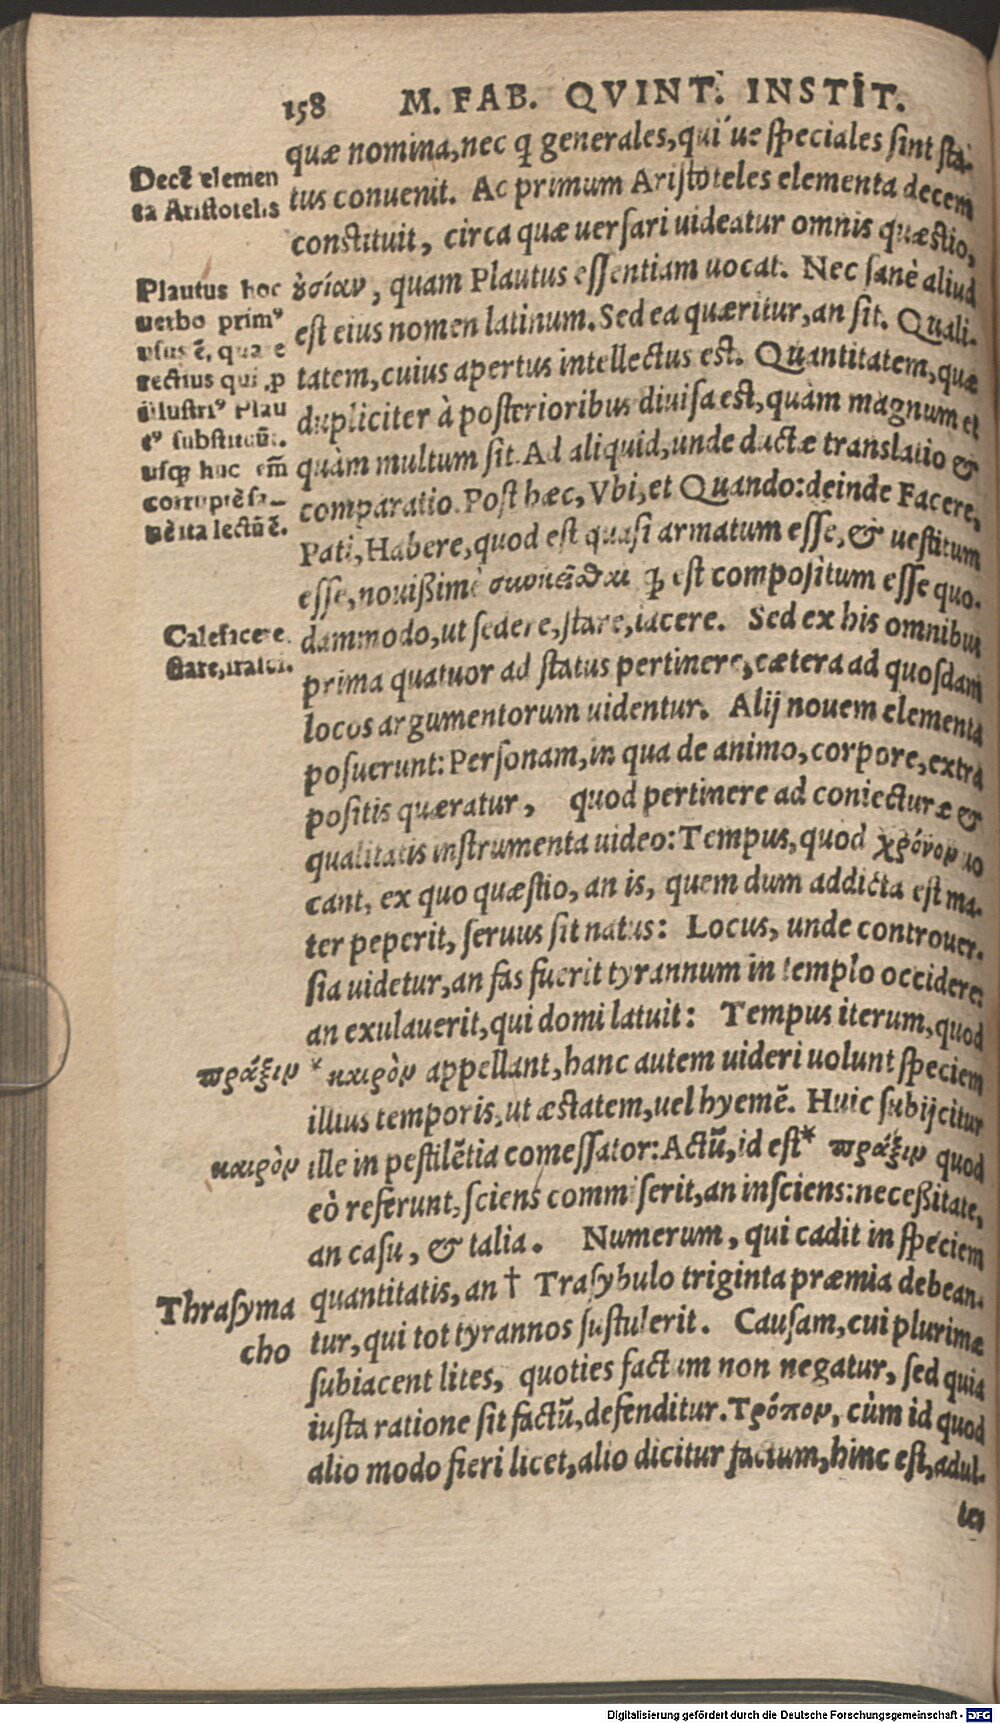 158 M. FAB. QVINT. INSTIT.
quæ nomina, nec q̃ generales, qui´ue speciales sint sta-
Decē elemen
ta Aristotelis
tus conuenit. Ac primum Aristoteles elementa decem
constituit, circa quæ uersari uideatur omnis quæstio,
Plautus hoc
uerbo primꝰ
usus ē, quare
rectius qui ꝓ
illustriꝰ Plau
tꝰ substituūt.
usq; huc em̄
corruptè fa-
uè ita lectū ē.
ȣ̓σίαν, quam Plautus essentiam uocat. Nec sanè aliud
est eius nomen latinum. Sed ea quæritur, an sit. Quali-
tatem, cuius apertus intellectus est. Quantitatem, quæ
dupliciter à posterioribus diuisa est, quàm magnum et
quàm multum sit. Ad aliquid, unde ductæ translatio &
comparatio. Post hæc, Vbi, et Quando: deinde Facere,
Pati, Habere, quod est quasi armatum esse, & uestitum
esse, nouißimè q̃ est compositum esse quo-
Calefacere.
Stare, irasci.
dammodo, ut sedere, stare, iacere. Sed ex his omnibus
prima quatuor ad status pertinere, cætera ad quosdam
locos argumentorum uidentur. Alij nouem elementa
posuerunt: Personam, in qua de animo, corpore, extra
positis quæratur, quod pertinere ad coniecturæ &
qualitatis instrumenta uideo: Tempus, quod χρόνον uo
cant, ex quo quæstio, an is, quem dum addicta est ma-
ter peperit, seruus sit natus: Locus, unde controuer-
sia uidetur, an fas fuerit tyrannum in templo occidere:
an exulauerit, qui domi latuit: Tempus iterum, quod
πράξιν
* καιρὸν appellant, hanc autem uideri uolunt speciem
illius temporis, ut æstatem, uel hyemē. Huic subijcitur
καιρὸν
ille in pestilētia comessator: Actū, id est* πράξιν quod
eò referunt, sciens commiserit, an insciens: neceßitate,
an casu, & talia. Numerum, qui cadit in speciem
Thrasyma
cho
quantitatis, an † Trasybulo triginta præmia debean-
tur, qui tot tyrannos sustulerit. Causam, cui plurimæ
subiacent lites, quoties factum non negatur, sed quia
iusta ratione sit factū, defenditur. Τρόπον, cùm id quod
alio modo fieri licet, alio dicitur factum, hinc est, adul-
ter
Digitalisierung gefördert durch die Deutsche Forschungsgemeinschaft - DFG